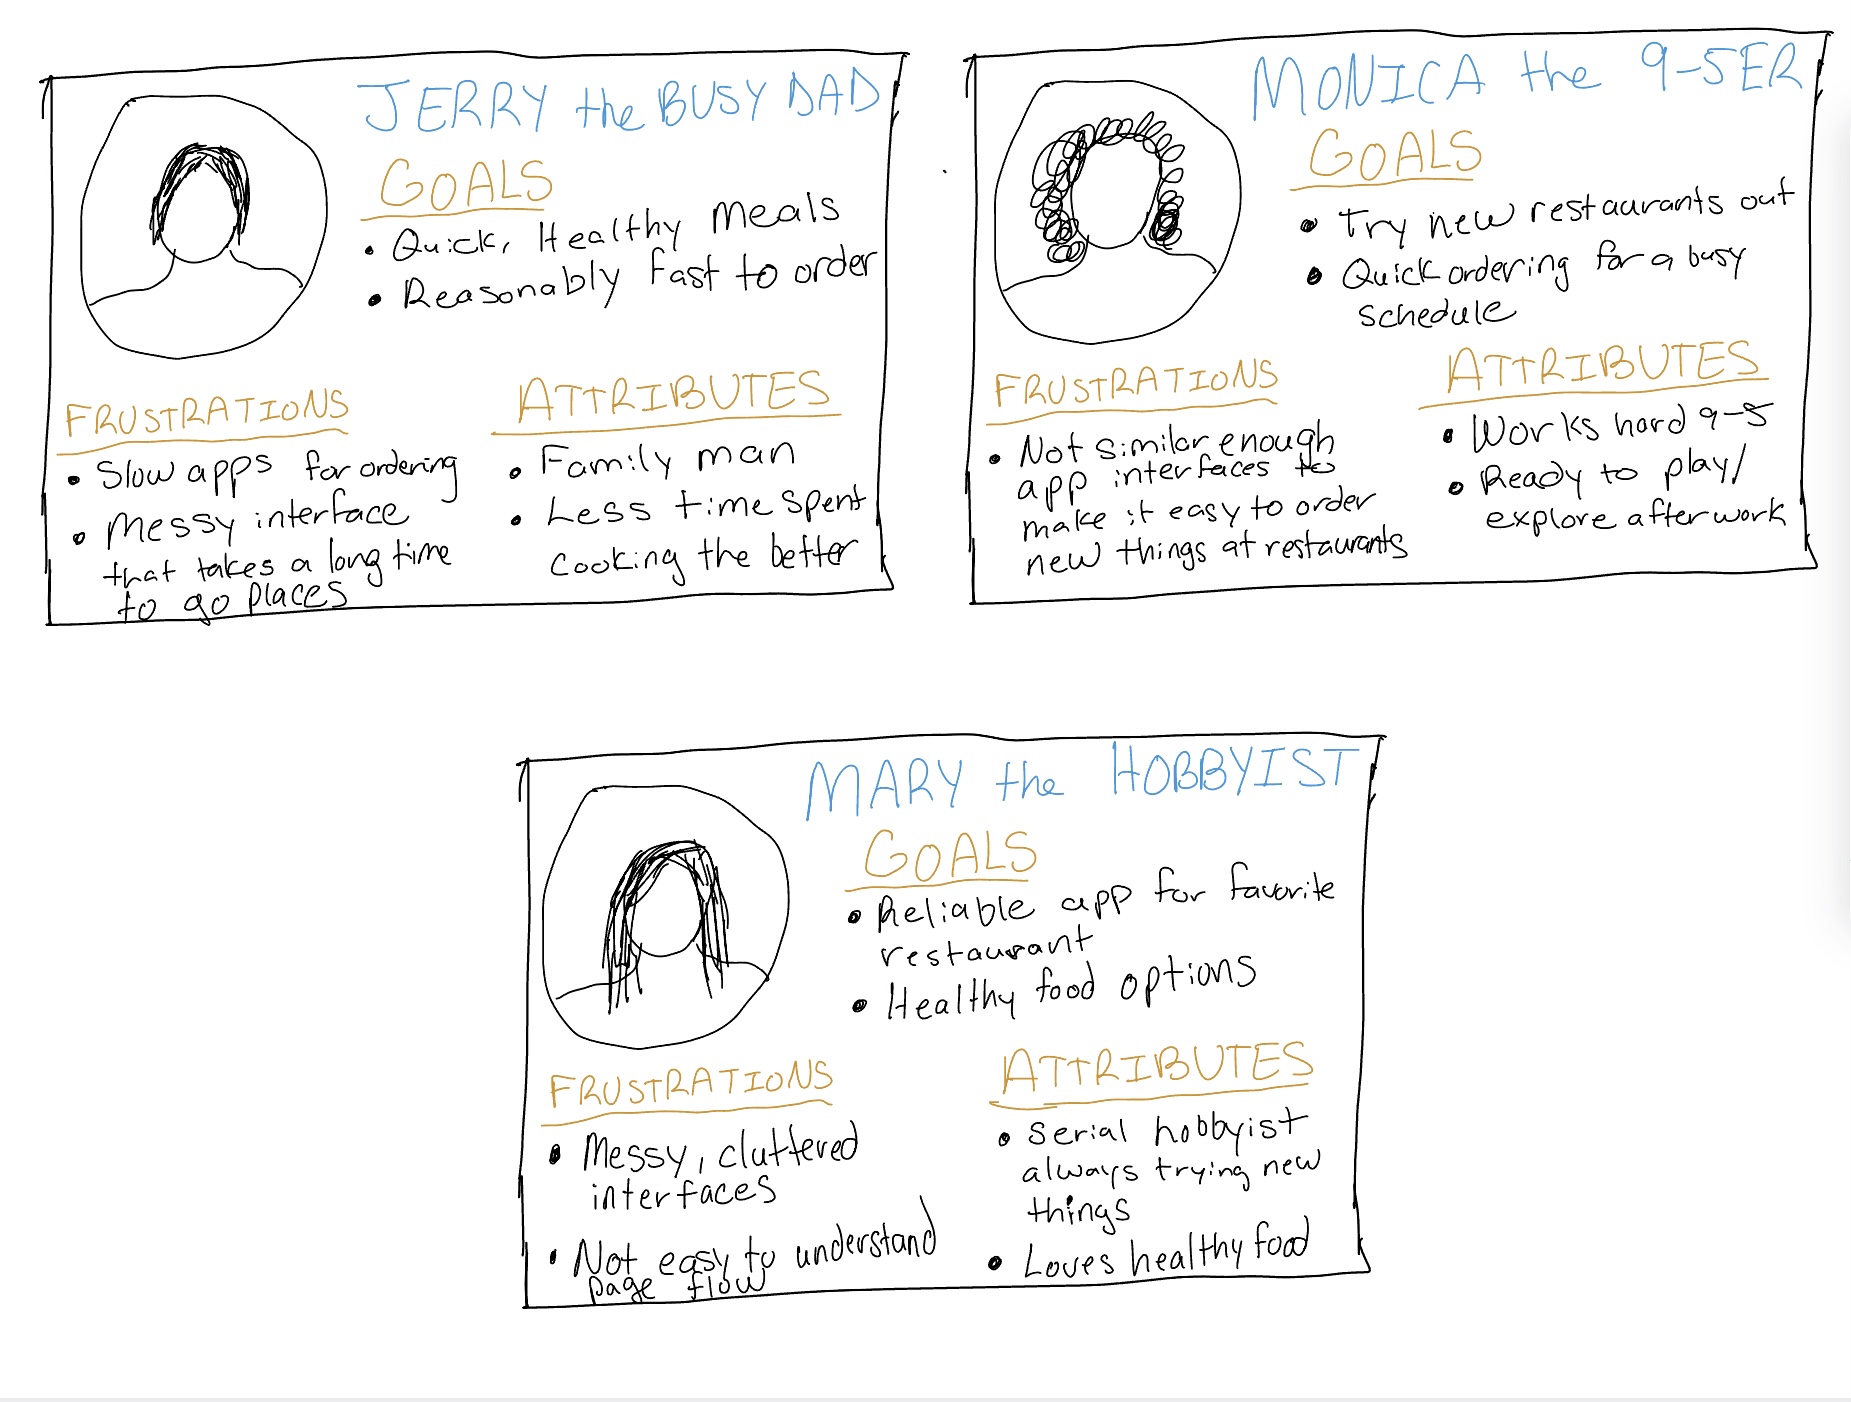 JERRY the BUSY DAD
GOALS
• Quick, Healthy Meals
• Reasonably fast to order
FRUSTRATIONS
• Slow apps for ordering
• Messy interface
that takes a long time
to go places
ATTRIBUTES
• Family man
• Less time spent
cooking the better
MONICA the 9-5ER
GOALS
• Try new restaurants out
• Quick ordering for a busy
schedule
FRUSTRATIONS
• Not similar enough
app interfaces to
make it easy to order
new things at restaurants
ATTRIBUTES
• Works hard 9-5
• Ready to play/
explore after work
MARY the HOBBYIST
GOALS
• Reliable app for favorite
restaurant
• Healthy food options
FRUSTRATIONS
• Messy, cluttered
interfaces
• Not easy to understand
page flow
ATTRIBUTES
• Serial hobbyist
always trying new
things
• Loves healthy food